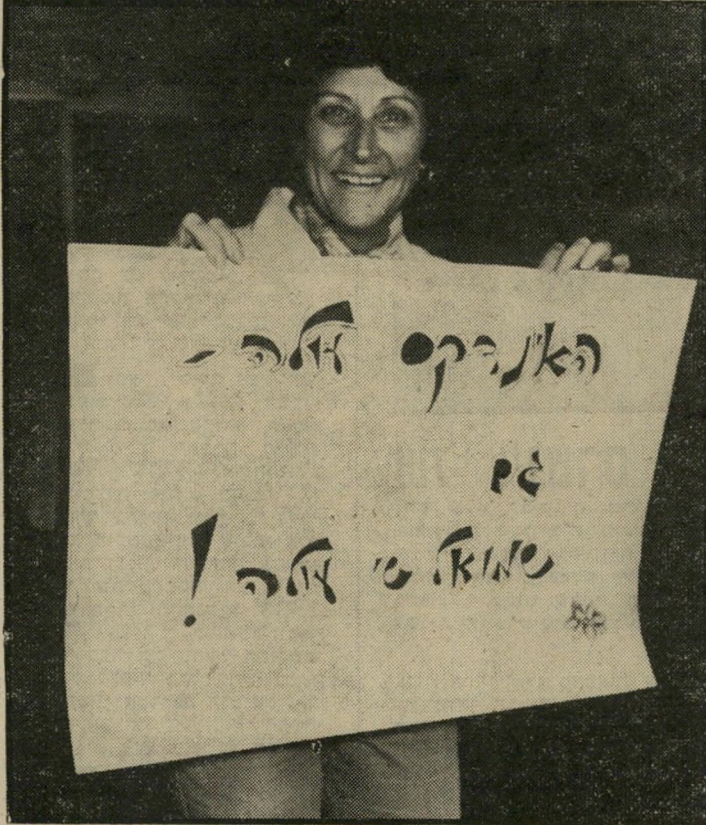 האינדקס עולה -
גם
שמואל שי עולה!